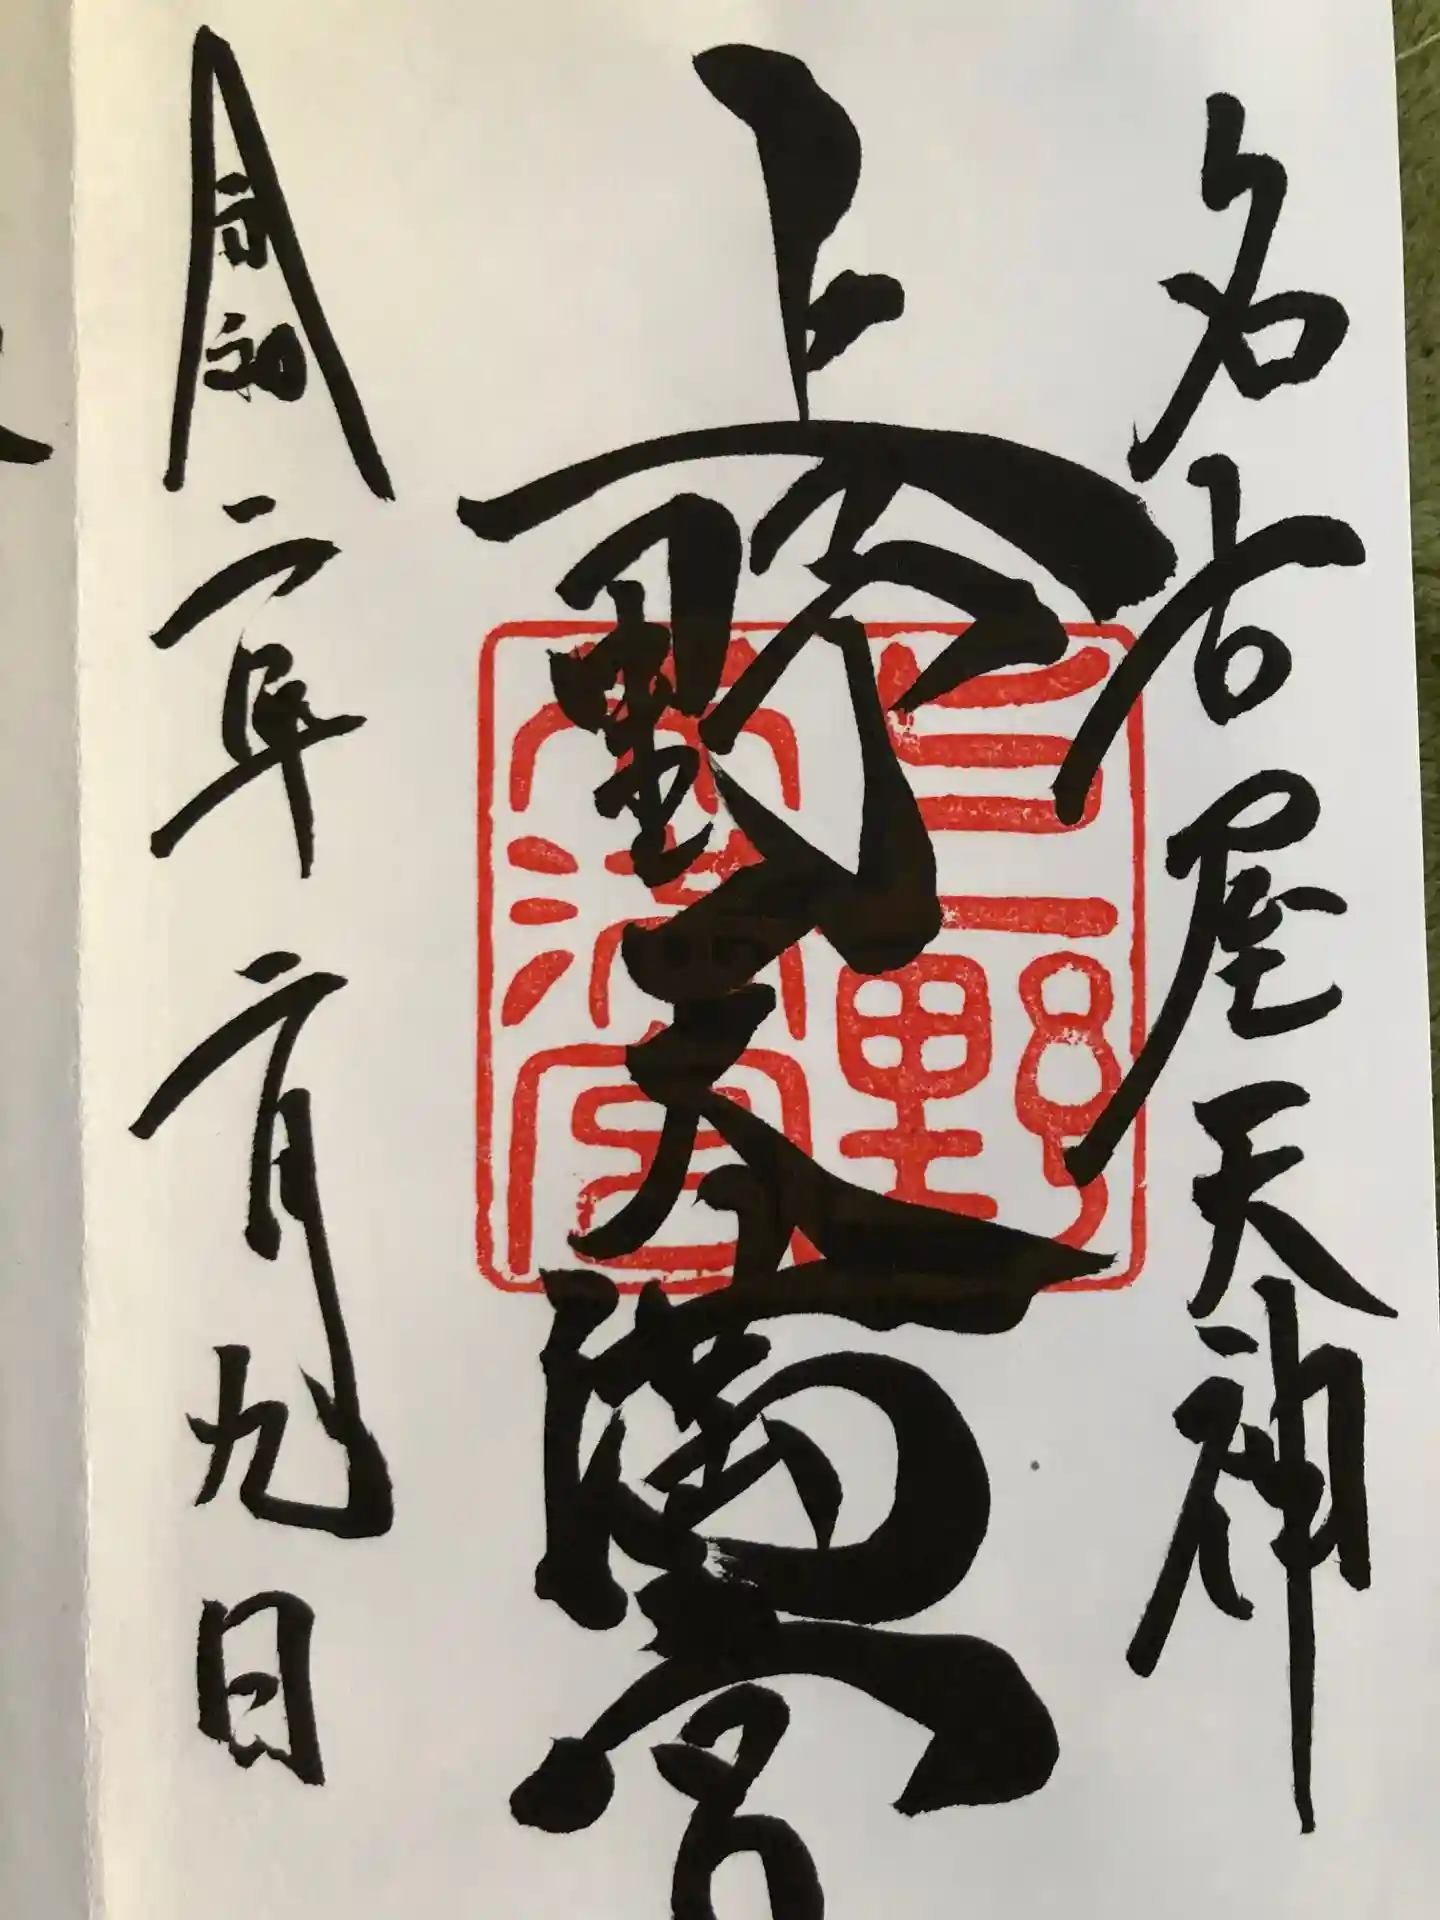 名古屋天神
上野天満宮
上野
天満宮
令和二年二月九日